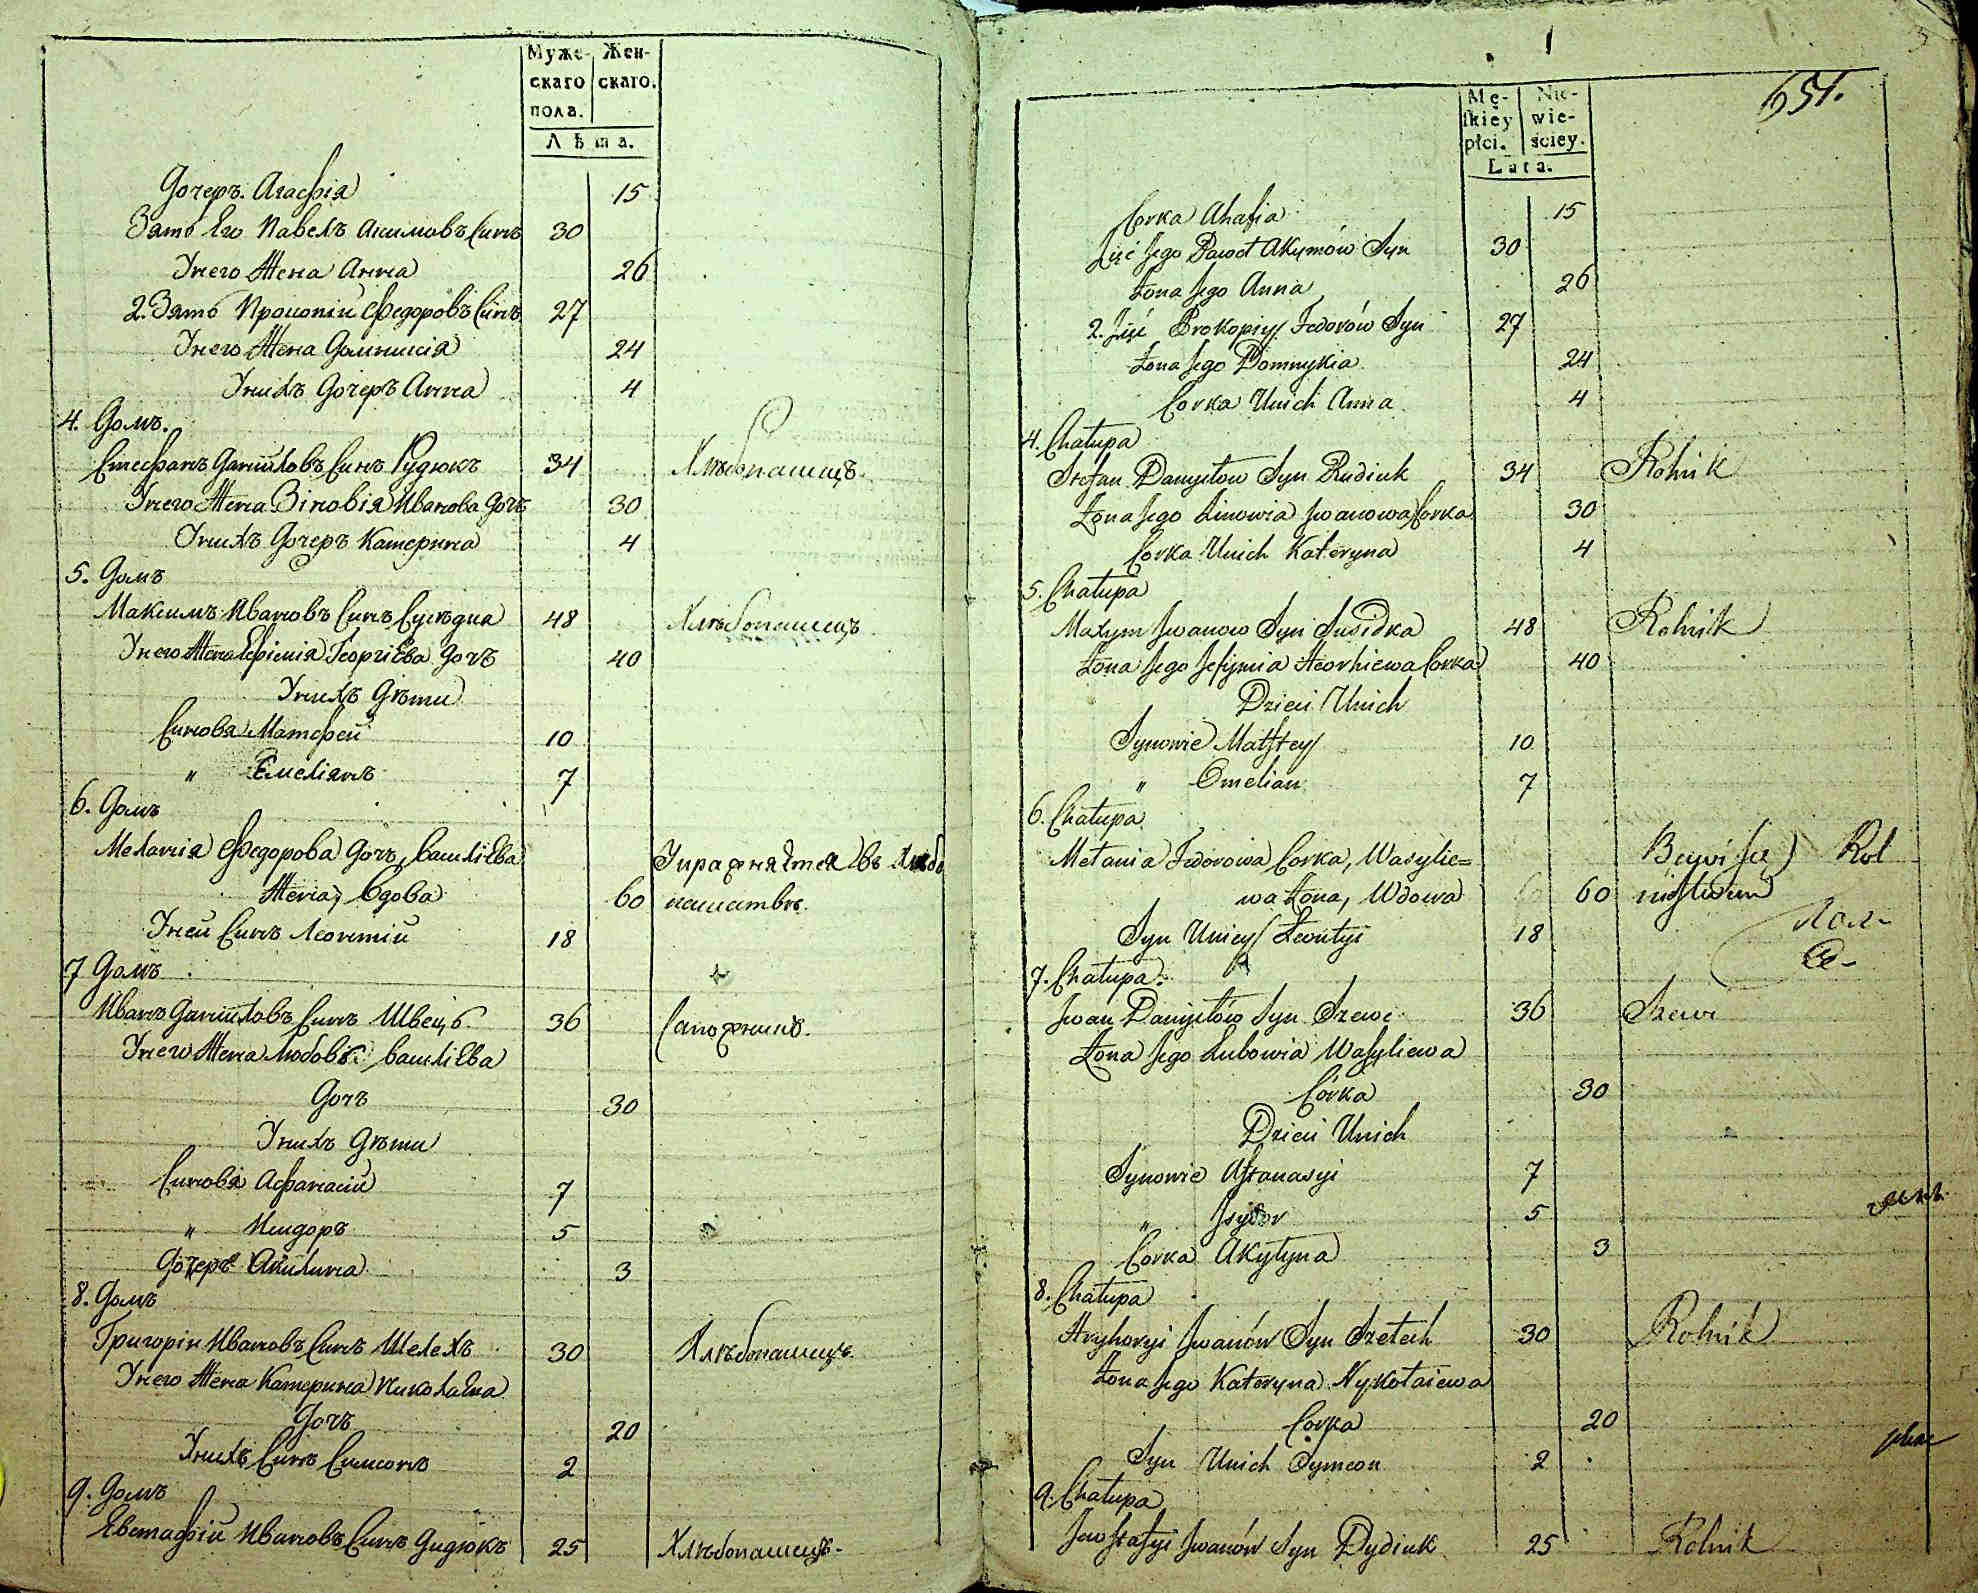 Муже- Жен-
скаго скаго.
пола.
Лѣта.
Дочеръ Агафія 15
Зять Его Павелъ Акимовъ Синъ 30
Унего Жена Анна 26
2. Зять Прокопій Федоровъ Синъ 27
Унего Жена Домникія 24
Унихъ Дочеръ Анна 4
4. Домъ.
Стефанъ Даниіловъ Синъ Рудюкъ 34 Хлѣбопашецъ
Унего Жена Зіновія Иванова Дочъ 30
Унихъ Дочеръ Катерина 4
5. Домъ
Максимъ Ивановъ Синъ Сусѣдка 48 Хлѣбопашецъ
Унего Жена Ефимія Георгіева Дочъ 40
Унихъ Дѣти
Синовя Матфей 10
" Емеліянъ 7
6. Домъ
Меланія Федорова Дочъ, Василіева Упражняется въ Хлѣбо
Жена, Вдова 60 пашествѣ
Уней Синъ Леонтій 18
7 Домъ
Иванъ Даниіловъ Синъ Швецъ 36 Сапожникъ.
Унего Жена Любовъ Василіева
Дочъ 30
Унихъ Дѣти
Синовя Афанасій 7
" Исидоръ 5
Дочеръ Акилина 3
8. Домъ
Григорій Ивановъ Синъ Шелехъ 30 Хлѣбопашецъ
Унего Жена Катерина Николаева
Дочъ 20
Унихъ Синъ Симеонъ 2
9. Домъ
Евстафій Ивановъ Синъ Дидюкъ 25 Хлѣбопашецъ.
1
3
651.
Mę- Nie-
skiey wie-
płci. ściey.
Lata.
Corka Ahafia 15
Zięć Jego Paweł Akymów Syn 30
Żona Jego Anna 26
2. Zięć Prokopiy Fedorów Syn 27
Żona Jego Domnykia 24
Corka Unich Anna 4
4. Chałupa
Stefan Danyłow Syn Rudiuk 34 Rolnik
Żona Jego Zinowia Iwanowa Corka 30
Corka Unich Kateryna 4
5. Chałupa
Maxym Iwanow Syn Susidka 48 Rolnik
Żona Jego Jefymia Heorhiewa Corka 40
Dzieci Unich
Synowie Matftey 10
" Omelian 7
6. Chałupa
Mełania Fedorowa Corka, Wasylie= Rol
wa Żona, Wdowa 60 nictwem
Syn Uniey Leontyi 18
7. Chałupa.
Iwan Danyłów Syn Szewc 36 Szewc
Żona Jego Lubowia Wasyliewa
Córka 30
Dzieci Unich
Synowie Aftanasyi 7
" Isydor 5
Corka Akyłyna 3
8. Chałupa
Hryhoryi Iwanów Syn Szelech 30 Rolnik
Żona Jego Kateryna Nykołaiewa
Corka 20
Syn Unich Symeon 2
9. Chałupa
Jewstafyi Iwanów Syn Dydiuk 25 Rolnik